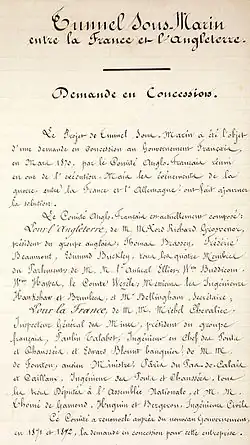 Tunnel Sous-Marin
entre la France et l'Angleterre.
Demande en Concession.
Le Projet de Tunnel Sous Marin a été l'objet
d'une demande en concession au Gouvernement Français,
en Mars 1870, par le Comité Anglo-Français réuni
en vue de l'exécution. Mais les évènements de la
guerre entre la France et l'Allemagne ont fait ajourner
la solution.
Le Comité Anglo-Français est actuellement composé:
Pour l'Angleterre, de M. M. Lord Richard Grosvenor,
président du groupe anglais, Thomas Brassey, Frédéric
Beaumont, Edmund Buckley, tous les quatre Membres
du Parlement; de M. M. l'Amiral Elliot, Wm Buddicom,
Wm Hawes, le Comte Messieurs les Ingénieurs
Hawkshaw et Brunlees, et Mr Bellingham, Secrétaire;
Pour la France, de M. M. Michel Chevalier,
Inspecteur Général des Mines, président du groupe
français, Paulin Talabot, Ingénieur en Chef des Ponts
et Chaussées, et Edward Blount banquier; de M. M.
de ancien Ministre, Paris du Pas-de-Calais
et Caillaux, Ingénieur des Ponts et Chaussées, tous
les trois Députés à l'Assemblée Nationale, et M. M.
Thomé de Gamond, et Bergeron, Ingénieurs Civils
Ce Comité a renouvelé auprès du nouveau Gouvernement
en 1871 et 1872, la demande en concession pour cette entreprise.